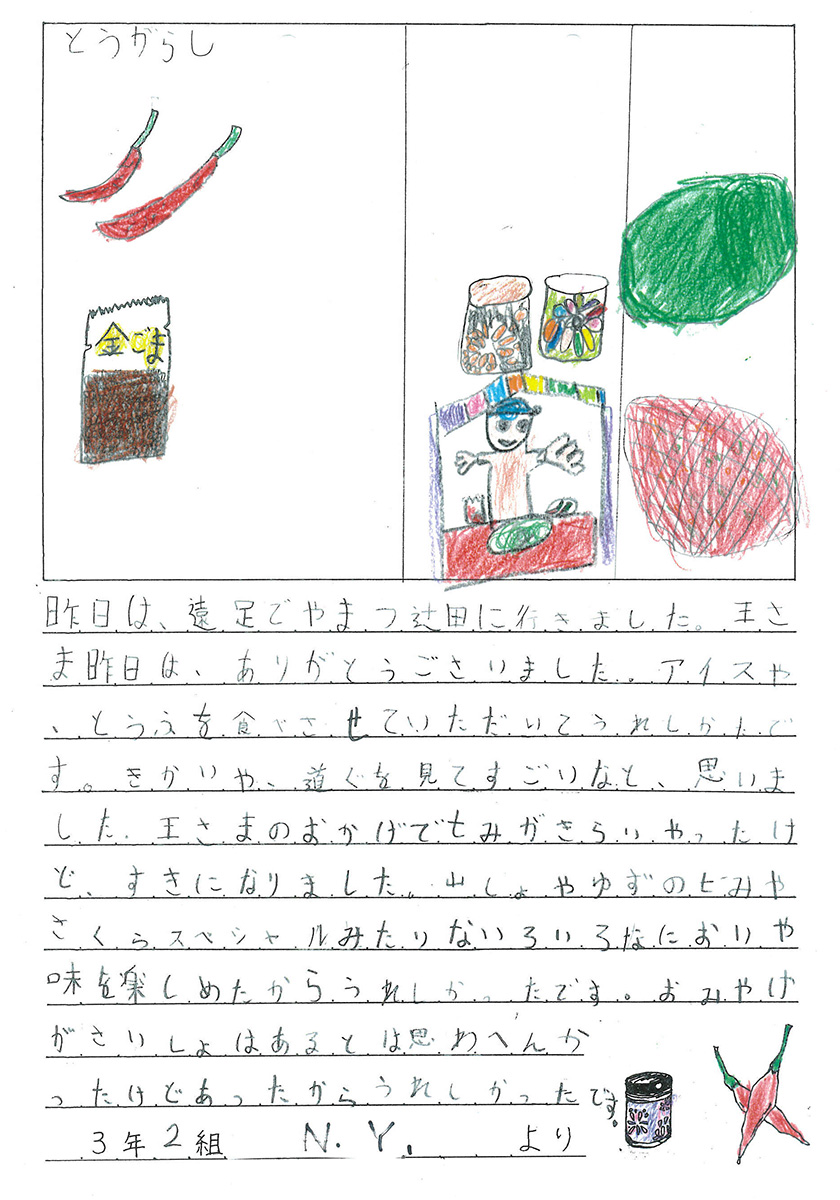 とうがらし
金ごま
昨日は、遠足でやまつ辻田に行きました。王さ
ま昨日は、ありがとうございました。アイスや
、とうふを食べさせていただいてうれしかたで
す。きかいや、道ぐを見てすごいなと、思いま
した。王さまのおかげで七みがきらいやったけ
ど、すきになりました。山しょやゆずの七みや
さくらスペシャルみたりないろいろなにおいや
味を楽しめたからうれしかったです。おみやけ
がさいしょはあるとは思わへんか
ったけどあったからうれしかったです。
3年2組 N.Y. より